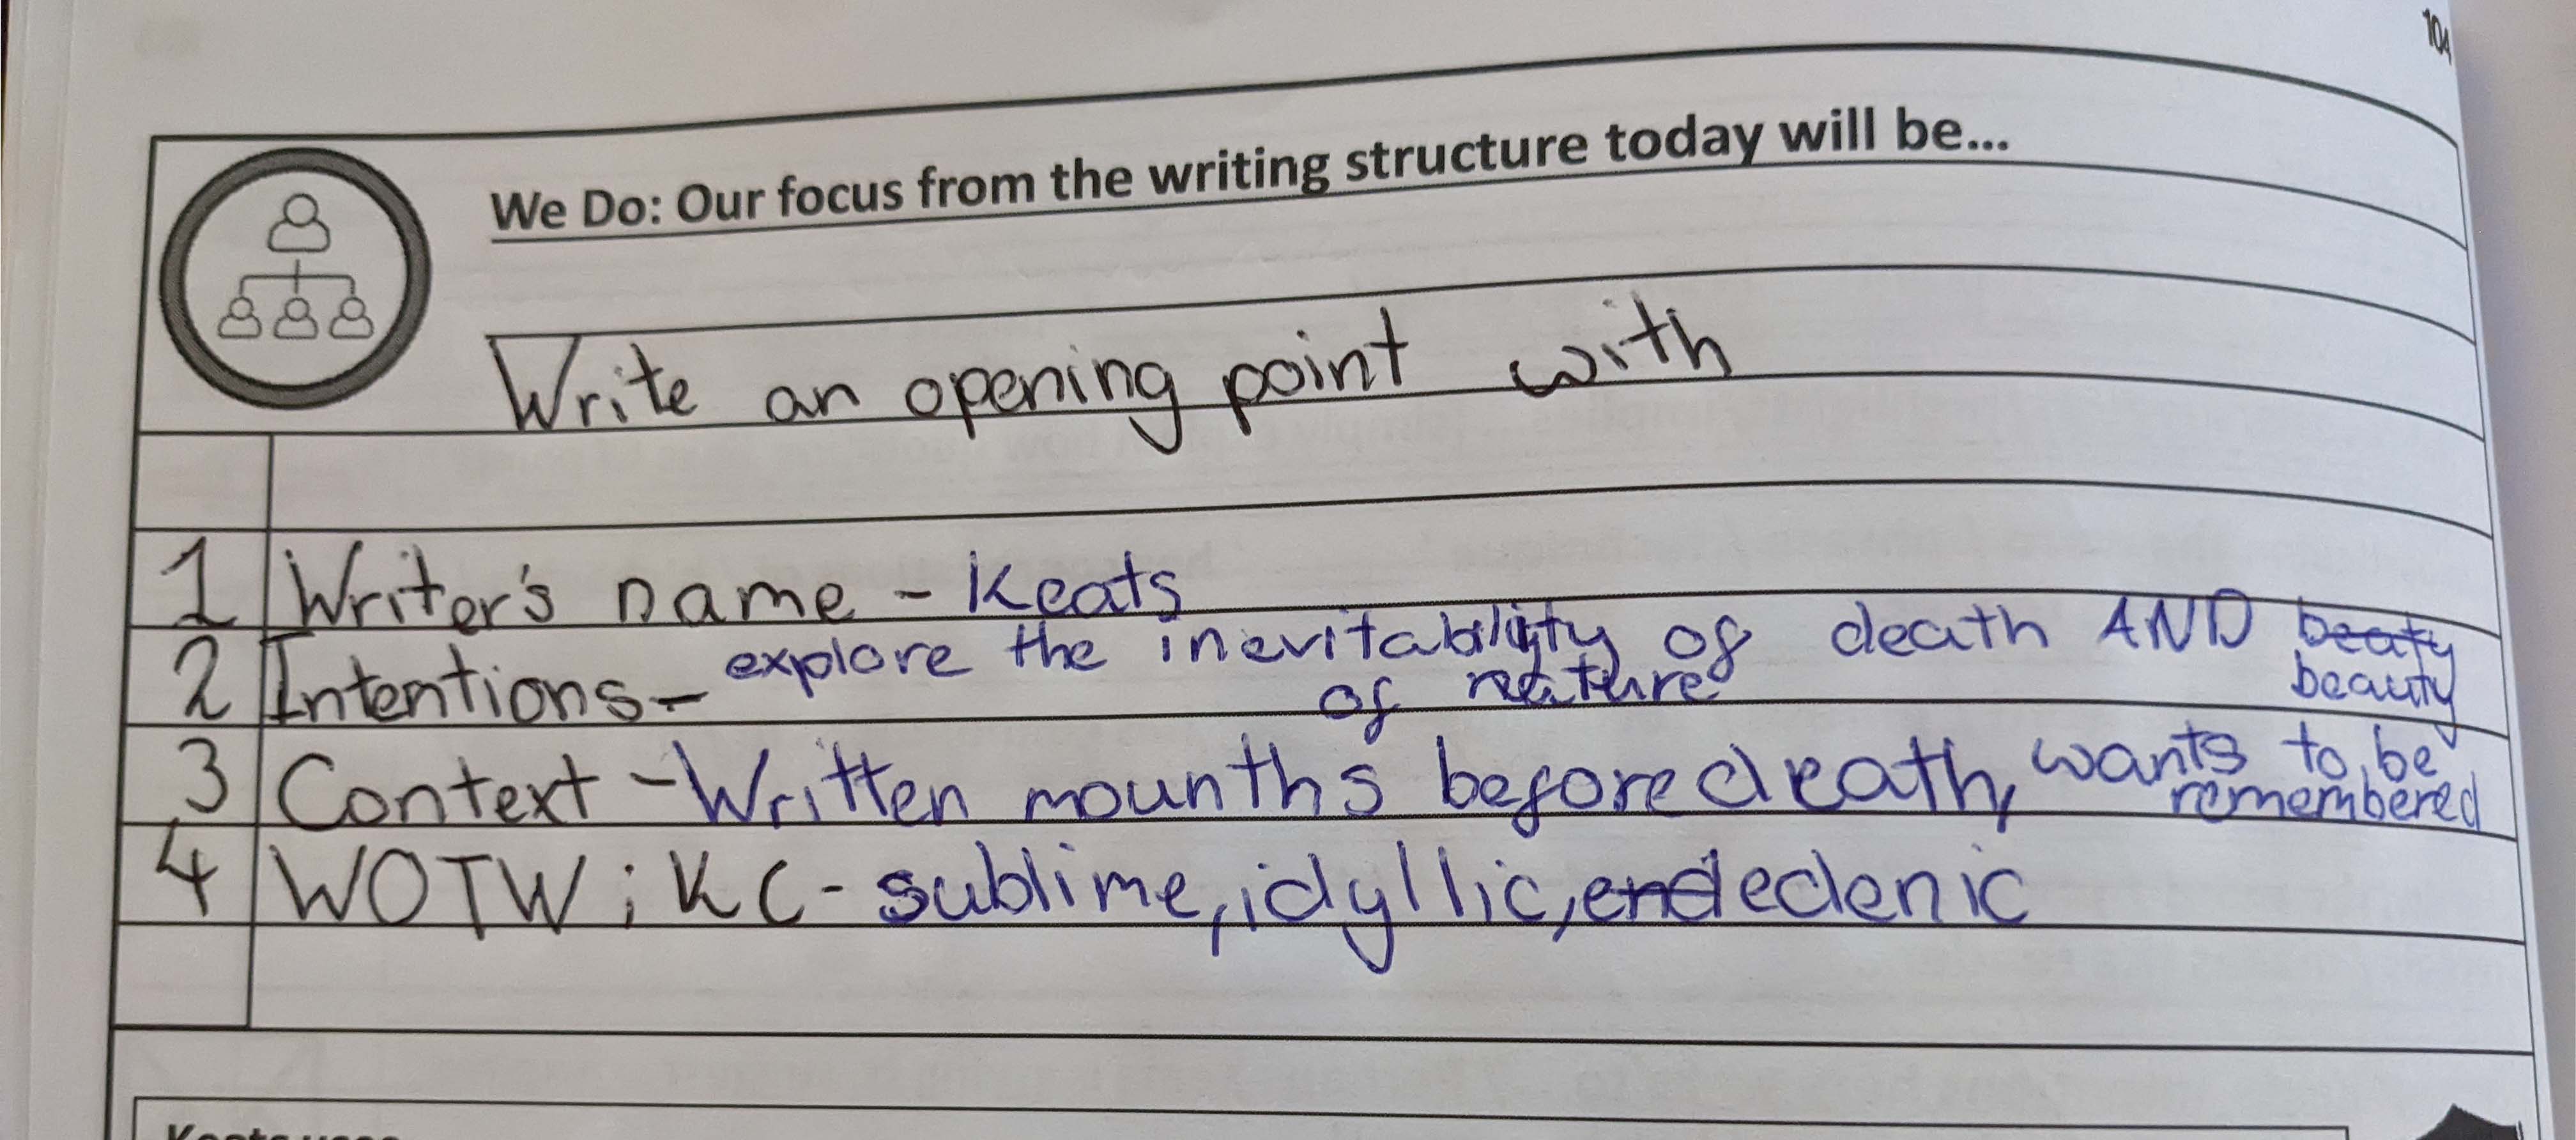 104
We Do: Our focus from the writing structure today will be...
Write an opening point with
1 Writer's name - Keats
2 Intentions - explore the inevitability of death AND beaty beauty
of nature
3 Context - Written mounths before death, wants to be
remembered
4 WOTW ; KC - sublime, idyllic, end edenic